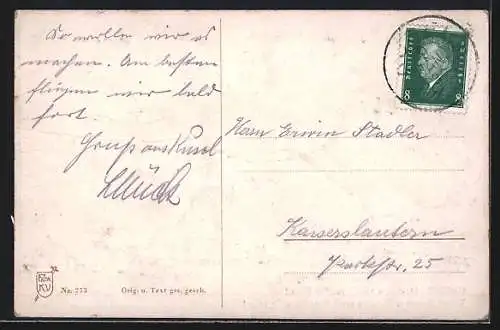 So wollen wir es
machen. Am besten
fliegen wir bald
fort.
Gruß aus Kusel
Deutsches Reich
8 8
Herrn Erwin Stadler
Kaiserslautern
Parkstr. 25
No. 273 Orig. u. Text ges. gesch.